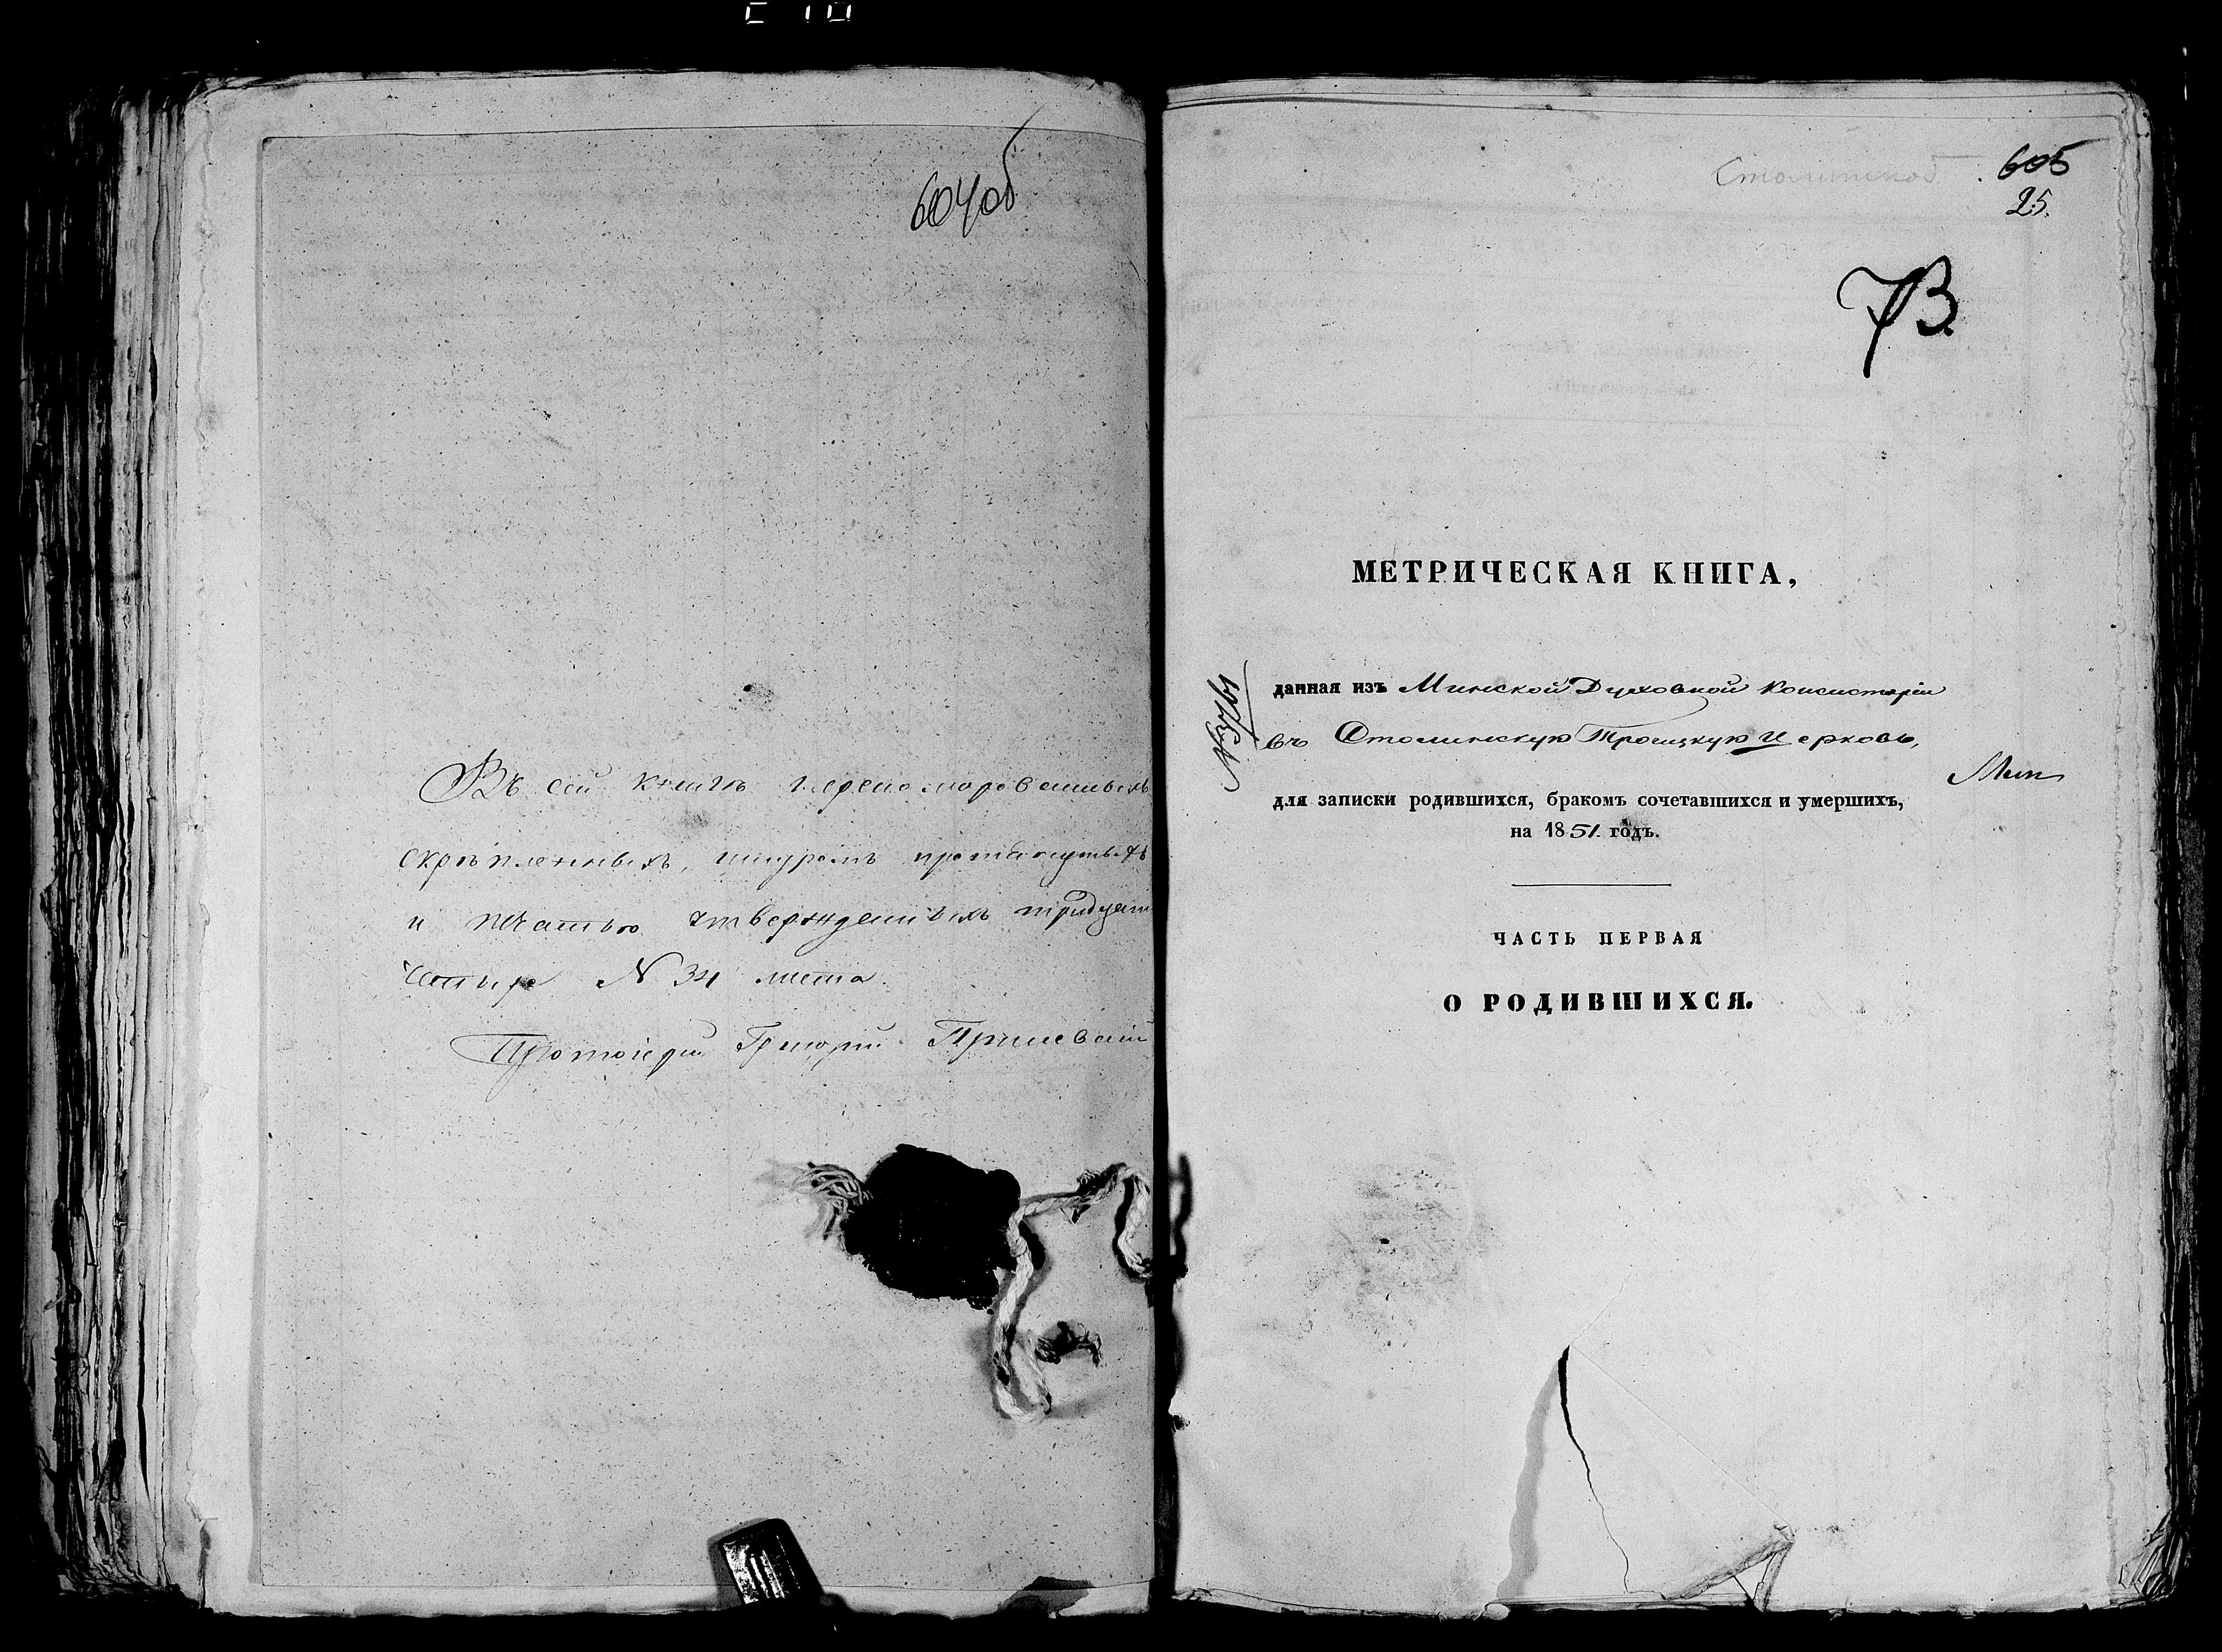 604об
Въ сей книгѣ перенумерованныхъ
скрѣпленныхъ, шнуромъ протянутыхъ
и печатью утвержденныхъ тридцать
четыре № 34 листа.
Протоіерей Григорій
605
25.
73.
МЕТРИЧЕСКАЯ КНИГА,
данная изъ Минской Духовной Консисторіи
въ Столинскую Троицкую Церковь,
Мин
для записки родившихся, бракомъ сочетавшихся и умершихъ,
на 1851. годъ.
ЧАСТЬ ПЕРВАЯ
О РОДИВШИХСЯ.